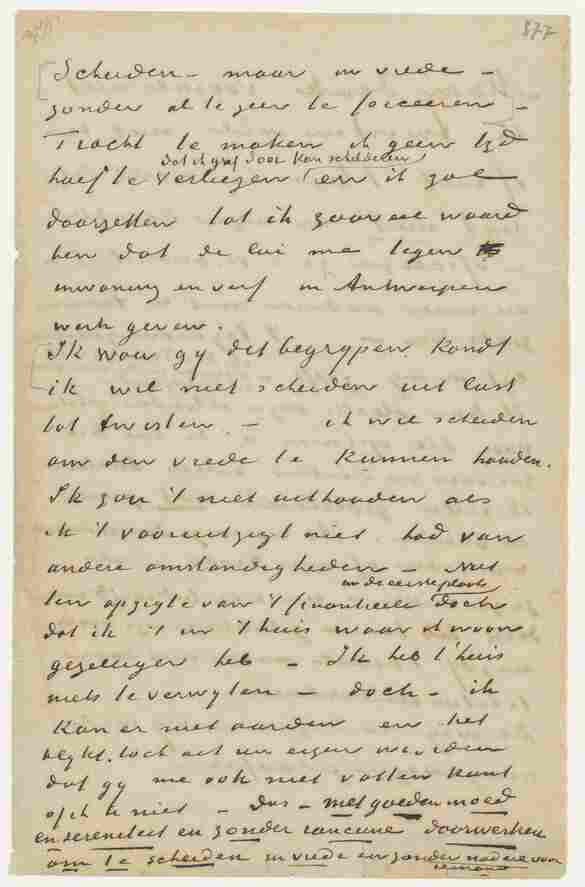 877
Scheiden – maar in vrede –
zonder al te zeer te forceeren –
Tracht te maken ik geen tyd
dat ik graf door kan schilderen
hoef te verliezen en ik zoo
doorzetten tot ik zooveel waard
ben dat de lui me tegen
inwoning en verf in Antwerpen
werk geven.
Ik wou gy dit begrypen kondt
ik wil niet scheiden uit lust
tot twisten. – ik wil scheiden
om den vrede te kunnen houden.
Ik zou 't niet uithouden als
ik 't vooruitzigt niet had van
andere omstandigheden – Niet
in de eerste plaats
ten opzigte van 't financiele doch
dat ik 't in 't huis waar ik woon
gezelliger heb – Ik heb t'huis
niets te verwyten – doch – ik
kan er niet aarden en het
blykt toch uit uw eigen woorden
dat gy me ook niet vatten kunt
of ik U niet – Dus – met goeden moed
en sereniteit en zonder rancune doorwerken
om te scheiden in vrede en zonder nadeel voor
iemand